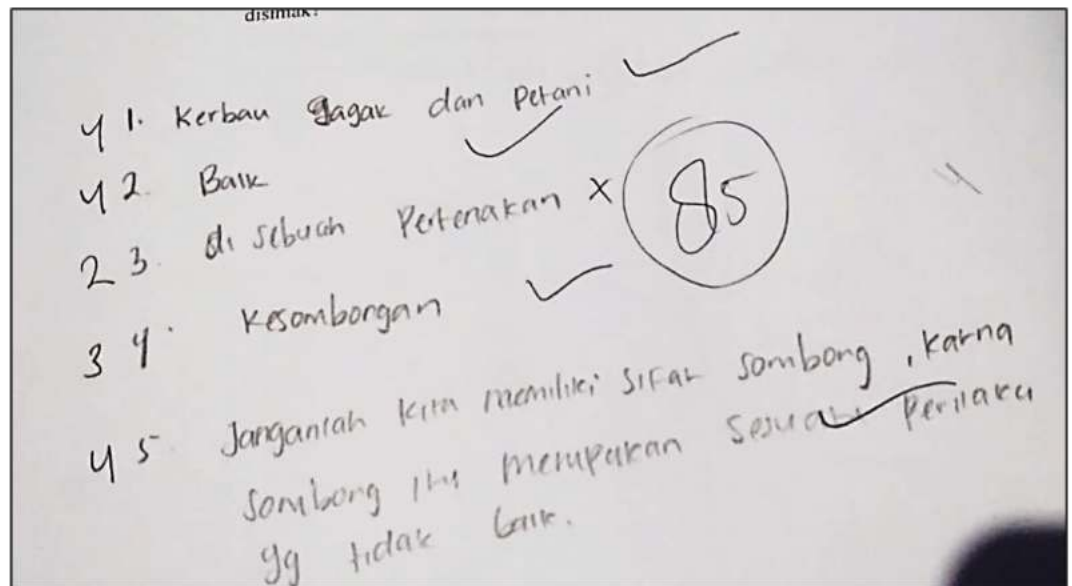 disimak!
4 1. Kerbau gagak dan Petani ✓
4 2. Baik ✓
2 3. di sebuah Pertenakan × 85
3 4. Kesombongan ✓
4 5. Janganlah kita memiliki sifat sombong, karna
sombong itu merupakan sesuatu Perilaku
yg tidak baik.